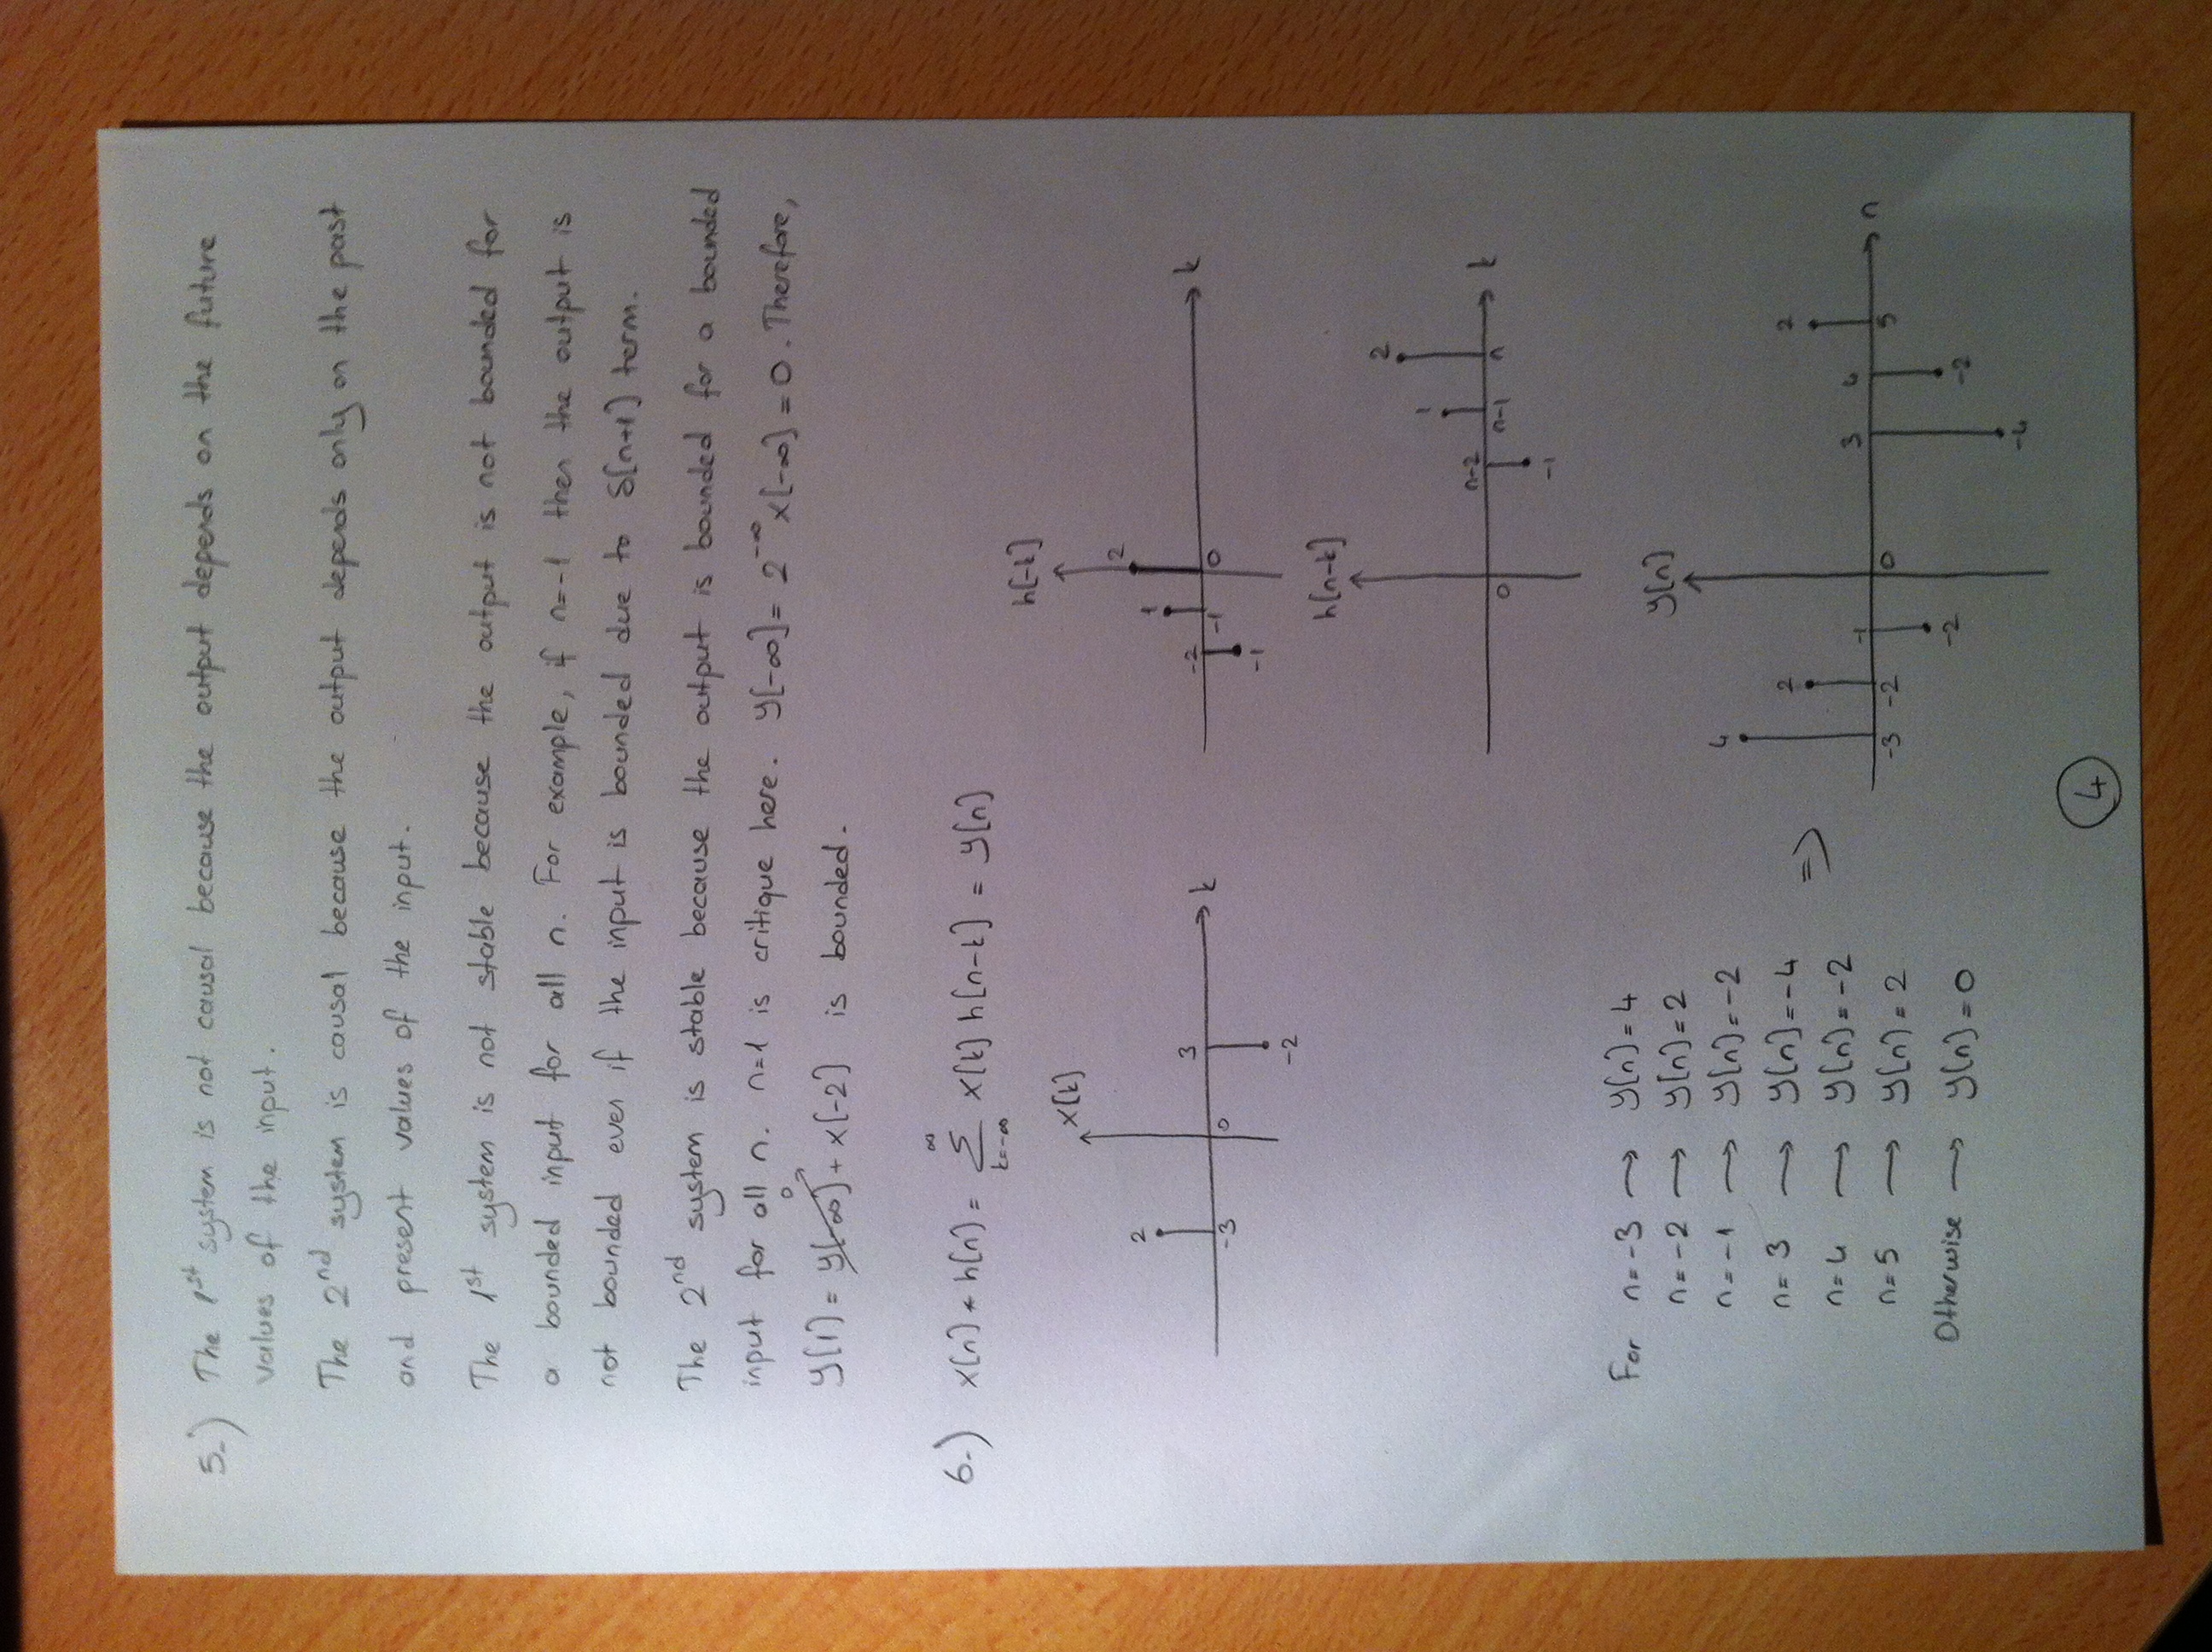 5-) The 1st system is not causal because the output depends on the future
values of the input.
The 2nd system is causal because the output depends only on the past
and present values of the input.
The 1st system is not stable because the output is not bounded for
a bounded input for all n. For example, if n=-1 then the output is
not bounded even if the input is bounded due to δ[n+1] term.
The 2nd system is stable because the output is bounded for a bounded
input for all n. n=1 is critique here. y[-∞] = 2^-∞ x[-∞] = 0. Therefore,
0
y[1] = y[-∞] + x[-2] is bounded.
6-) x[n] * h[n] = ∑ x[k] h[n-k] = y[n]
∞
k=-∞
x[k]
2
-3
0
3
-2
k
h[-k]
2
1
-2
-1
-1
0
k
h[n-k]
2
1
n-2
n-1
n
0
-1
k
For n=-3 → y[n]=4
n=-2 → y[n]=2
n=-1 → y[n]=-2
n=3 → y[n]=-4
n=4 → y[n]=-2
n=5 → y[n]=2
Otherwise → y[n]=0
=>
y[n]
4
2
2
-1
3
4
n
-3
-2
0
5
-2
-2
-4
4